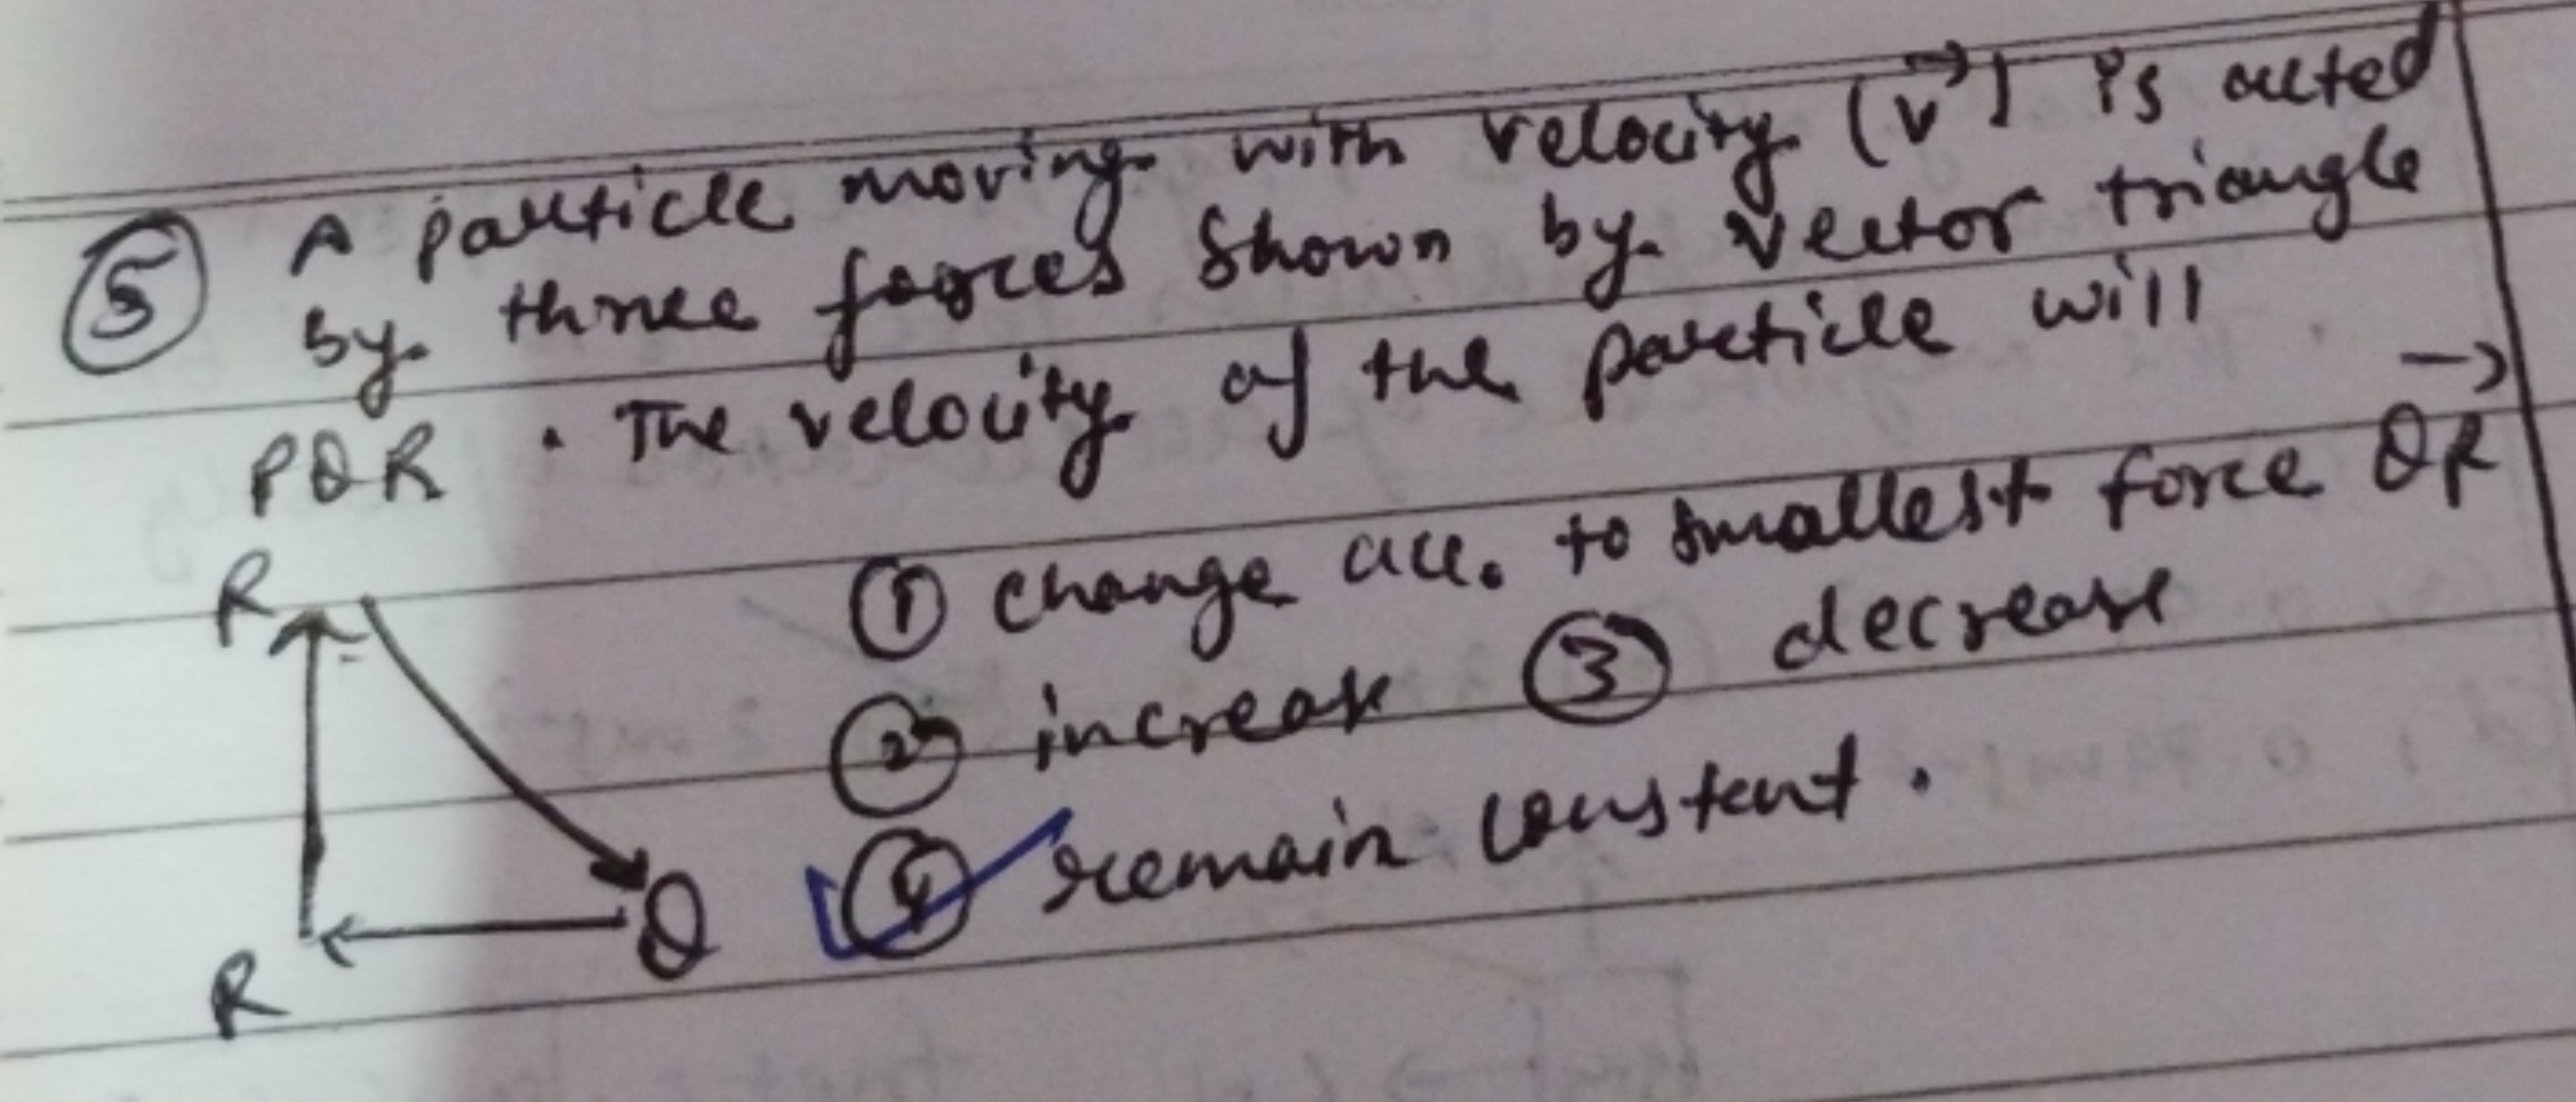 ⑤ A particle moving with velocity (v⃗) is acted
by three forces shown by vector triangle
PQR . The velocity of the particle will
① change acc. to smallest force QR⃗
② increase ③ decrease
④ remain constant .
R
Q
R